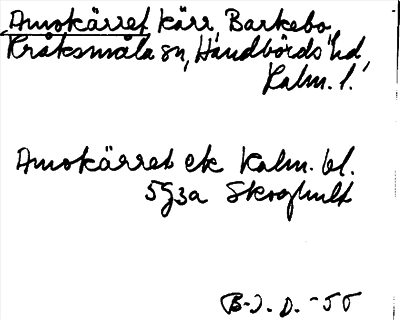 Amokärret kärr, Barkebo,
Kråksmåla sn, Handbörds hd,
Kalm. l.
Amokärret ek Kalm. bl.
5g3a Skoghult
B-J. D. -55